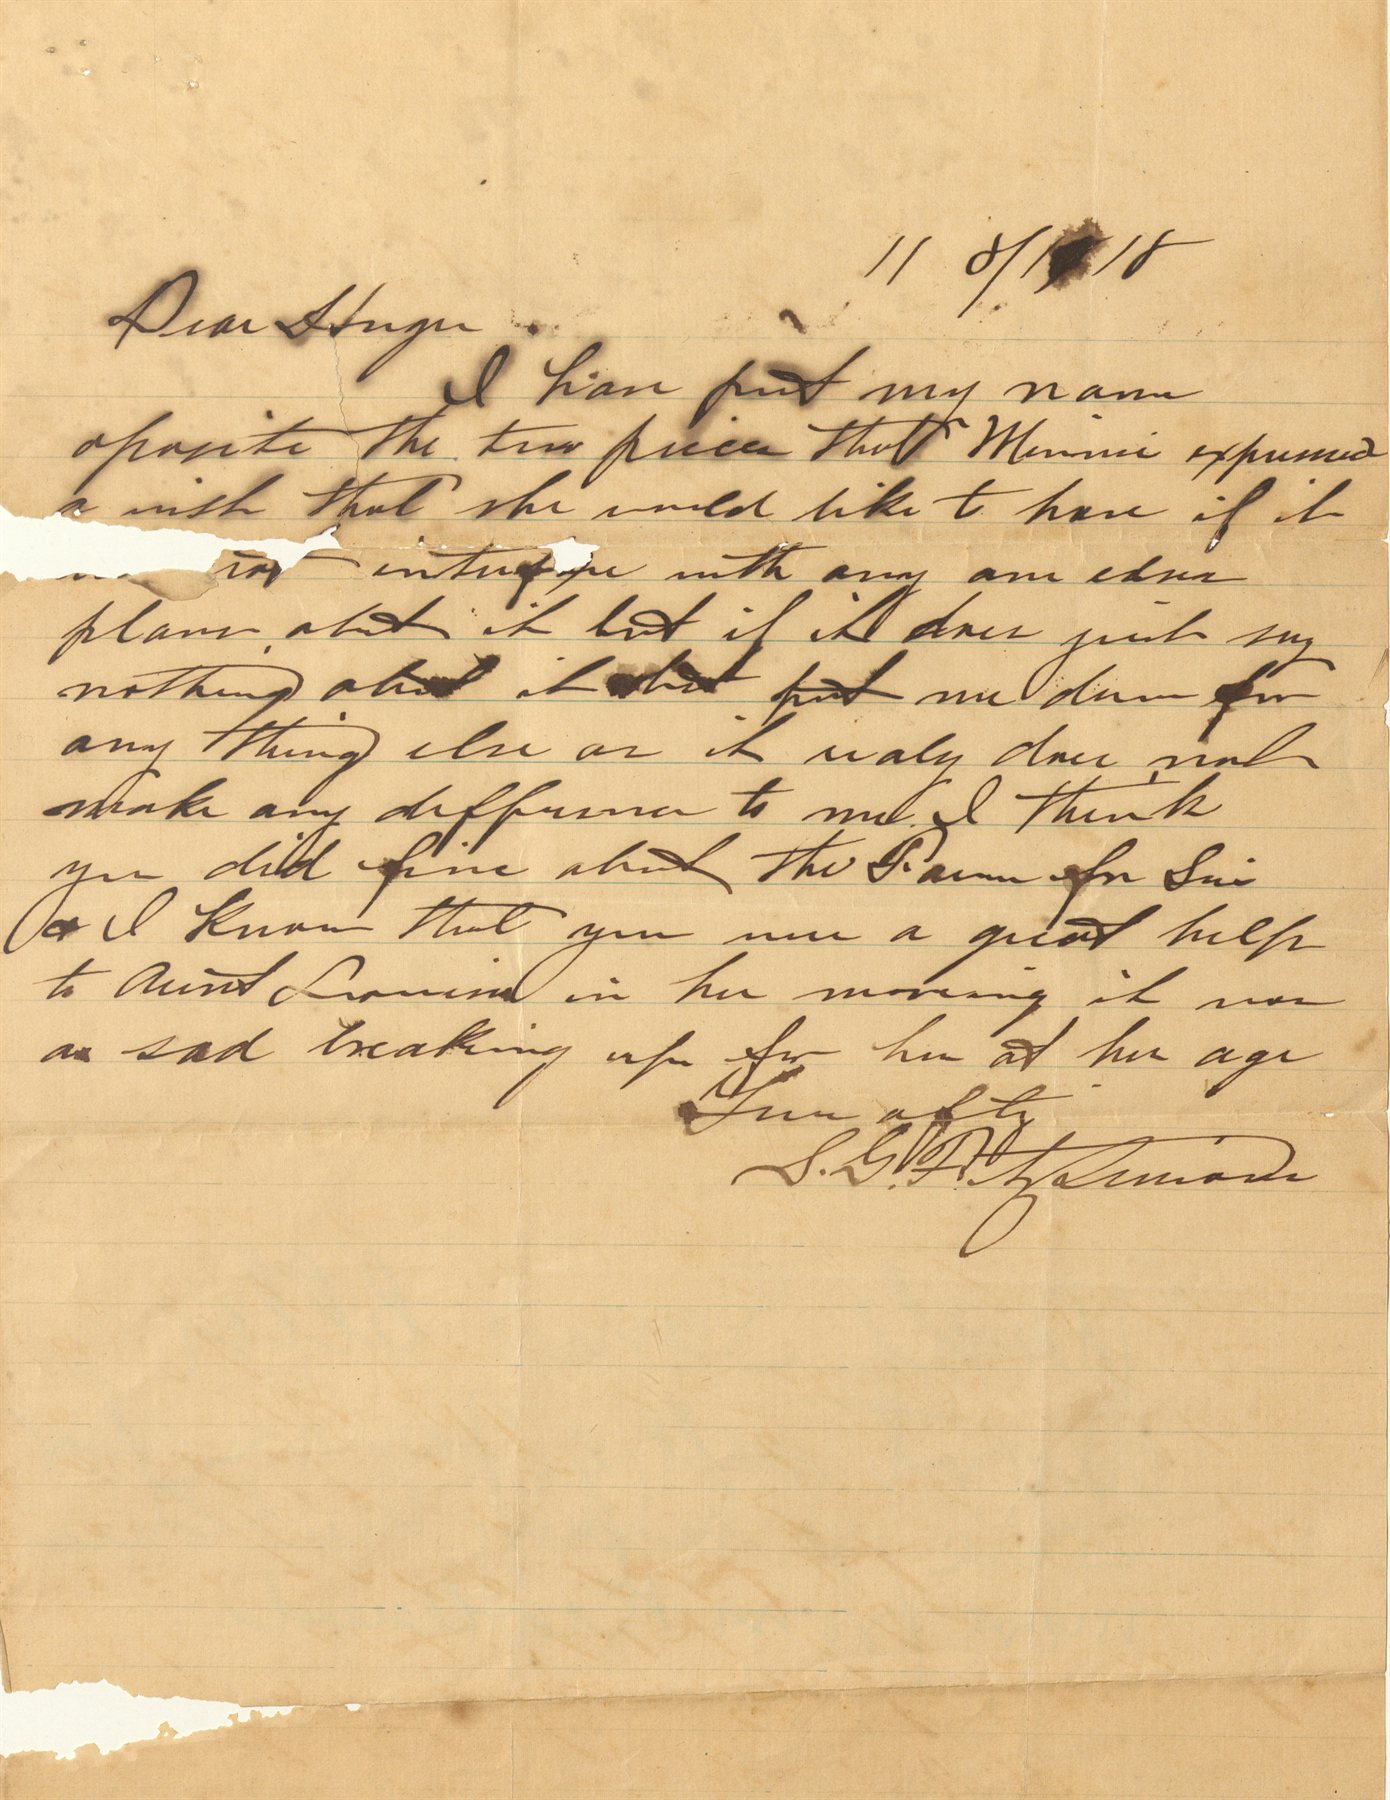 11 8/1918
Dear Huger
I have put my name
oposite the two pieces that Minnie expressed
a wish that she would like to have if it
not interfere with any one elses
plans about it but if it does just say
nothing about it but put me down for
any thing else as it realy does not
make any difference to me. I think
you did fine about the Farm for Sue
& I know that you were a great help
to Aunt Louisa in her moveing it was
a sad breaking up for her at her age
Your afty
S. G. FitzSimons